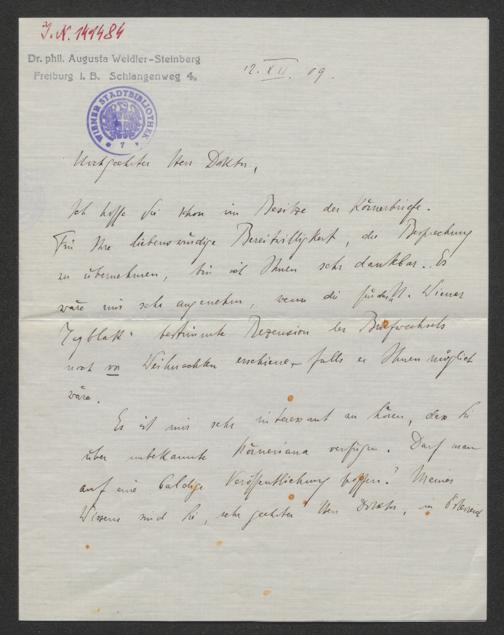 J.N. 141484
Dr. phil. Augusta Weldler-Steinberg
Freiburg i. B. Schlangenweg 4.
WIENER STADTBIBLIOTHEK
* 7 *
12. XII. 09.
Hochgeehrter Herr Doktor,
Ich hoffe Sie schon im Besitze der Körnerbriefe.
Für Ihre liebenswürdige Bereitwilligkeit, die Besprechung
zu übernehmen, bin ich Ihnen sehr dankbar. Es
wäre mir sehr angenehm, wenn die für das N. Wiener
Tagblatt bestimmte Rezension des Briefwechsels
noch vor Weihnachten erschiene, falls es Ihnen möglich
wäre.
Es ist mir sehr interessant zu hören, dass Sie
über unbekannte Körneriana verfügen. Darf man
auf eine baldige Veröffentlichung hoffen? Meines
Wissens sind Sie, sehr geehrter Herr Doktor, in Österreich